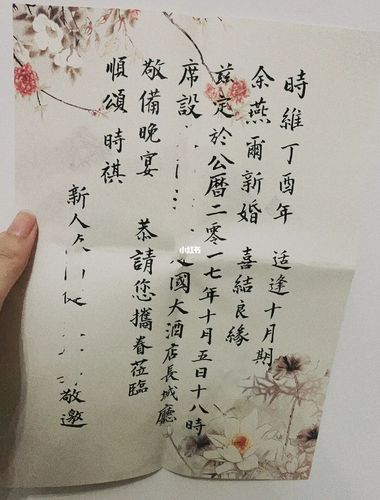 時維丁酉年 适逢十月期
余燕爾新婚 喜結良緣
兹定於公曆二零一七年十月五日十八時
席設 國大酒店長城廳
敬備晚宴 恭請您攜眷莅臨
順頌時祺
新人 敬邀
小红书